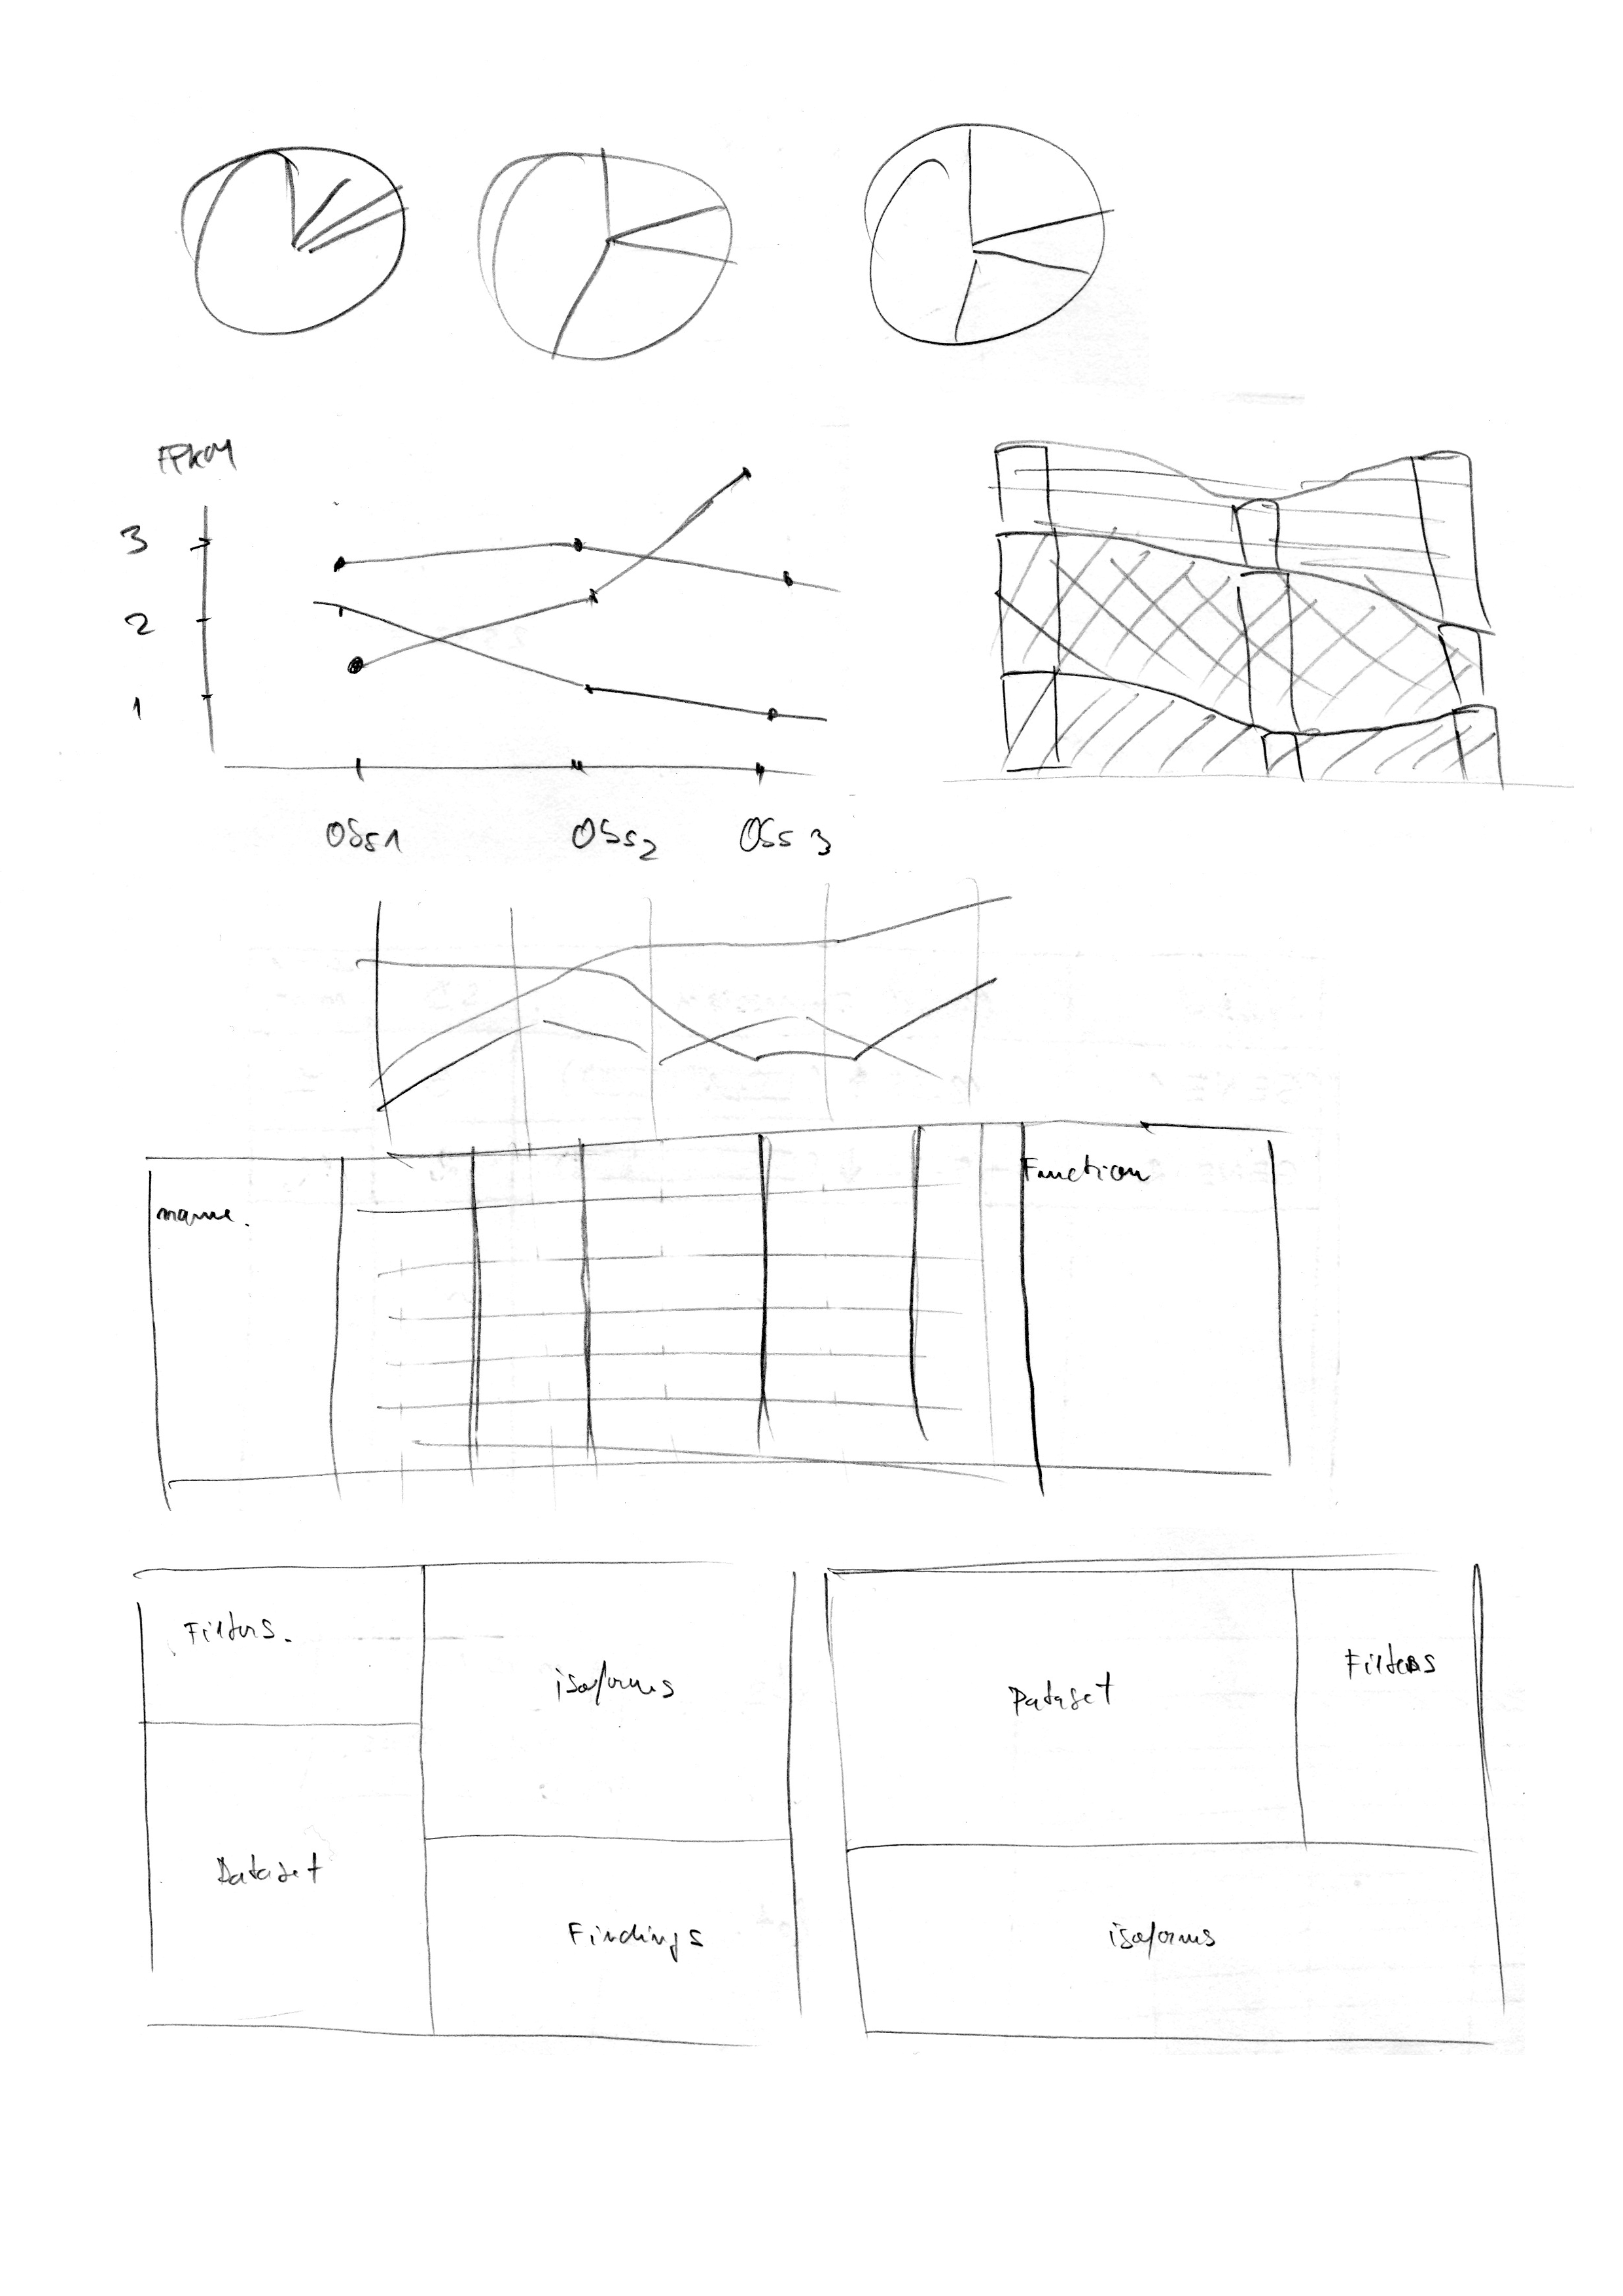 FPKM
3
2
1
OSS1
OSS2
OSS 3
name.
Function
Filters.
isoforms
Dataset
Findings
Dataset
Filters
isoforms